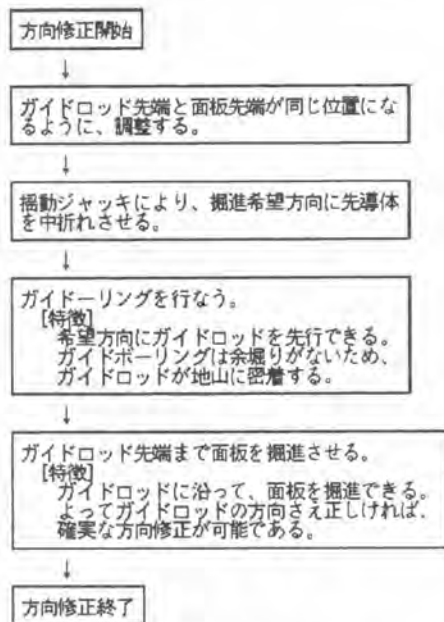 方向修正開始
↓
ガイドロッド先端と面板先端が同じ位置にな
るように、調整する。
↓
揺動ジャッキにより、掘進希望方向に先導体
を中折れさせる。
↓
ガイドーリングを行なう。
[特徴]
希望方向にガイドロッドを先行できる。
ガイドボーリングは余堀りがないため、
ガイドロッドが地山に密着する。
↓
ガイドロッド先端まで面板を掘進させる。
[特徴]
ガイドロッドに沿って、面板を掘進できる。
よってガイドロッドの方向さえ正しければ、
確実な方向修正が可能である。
↓
方向修正終了